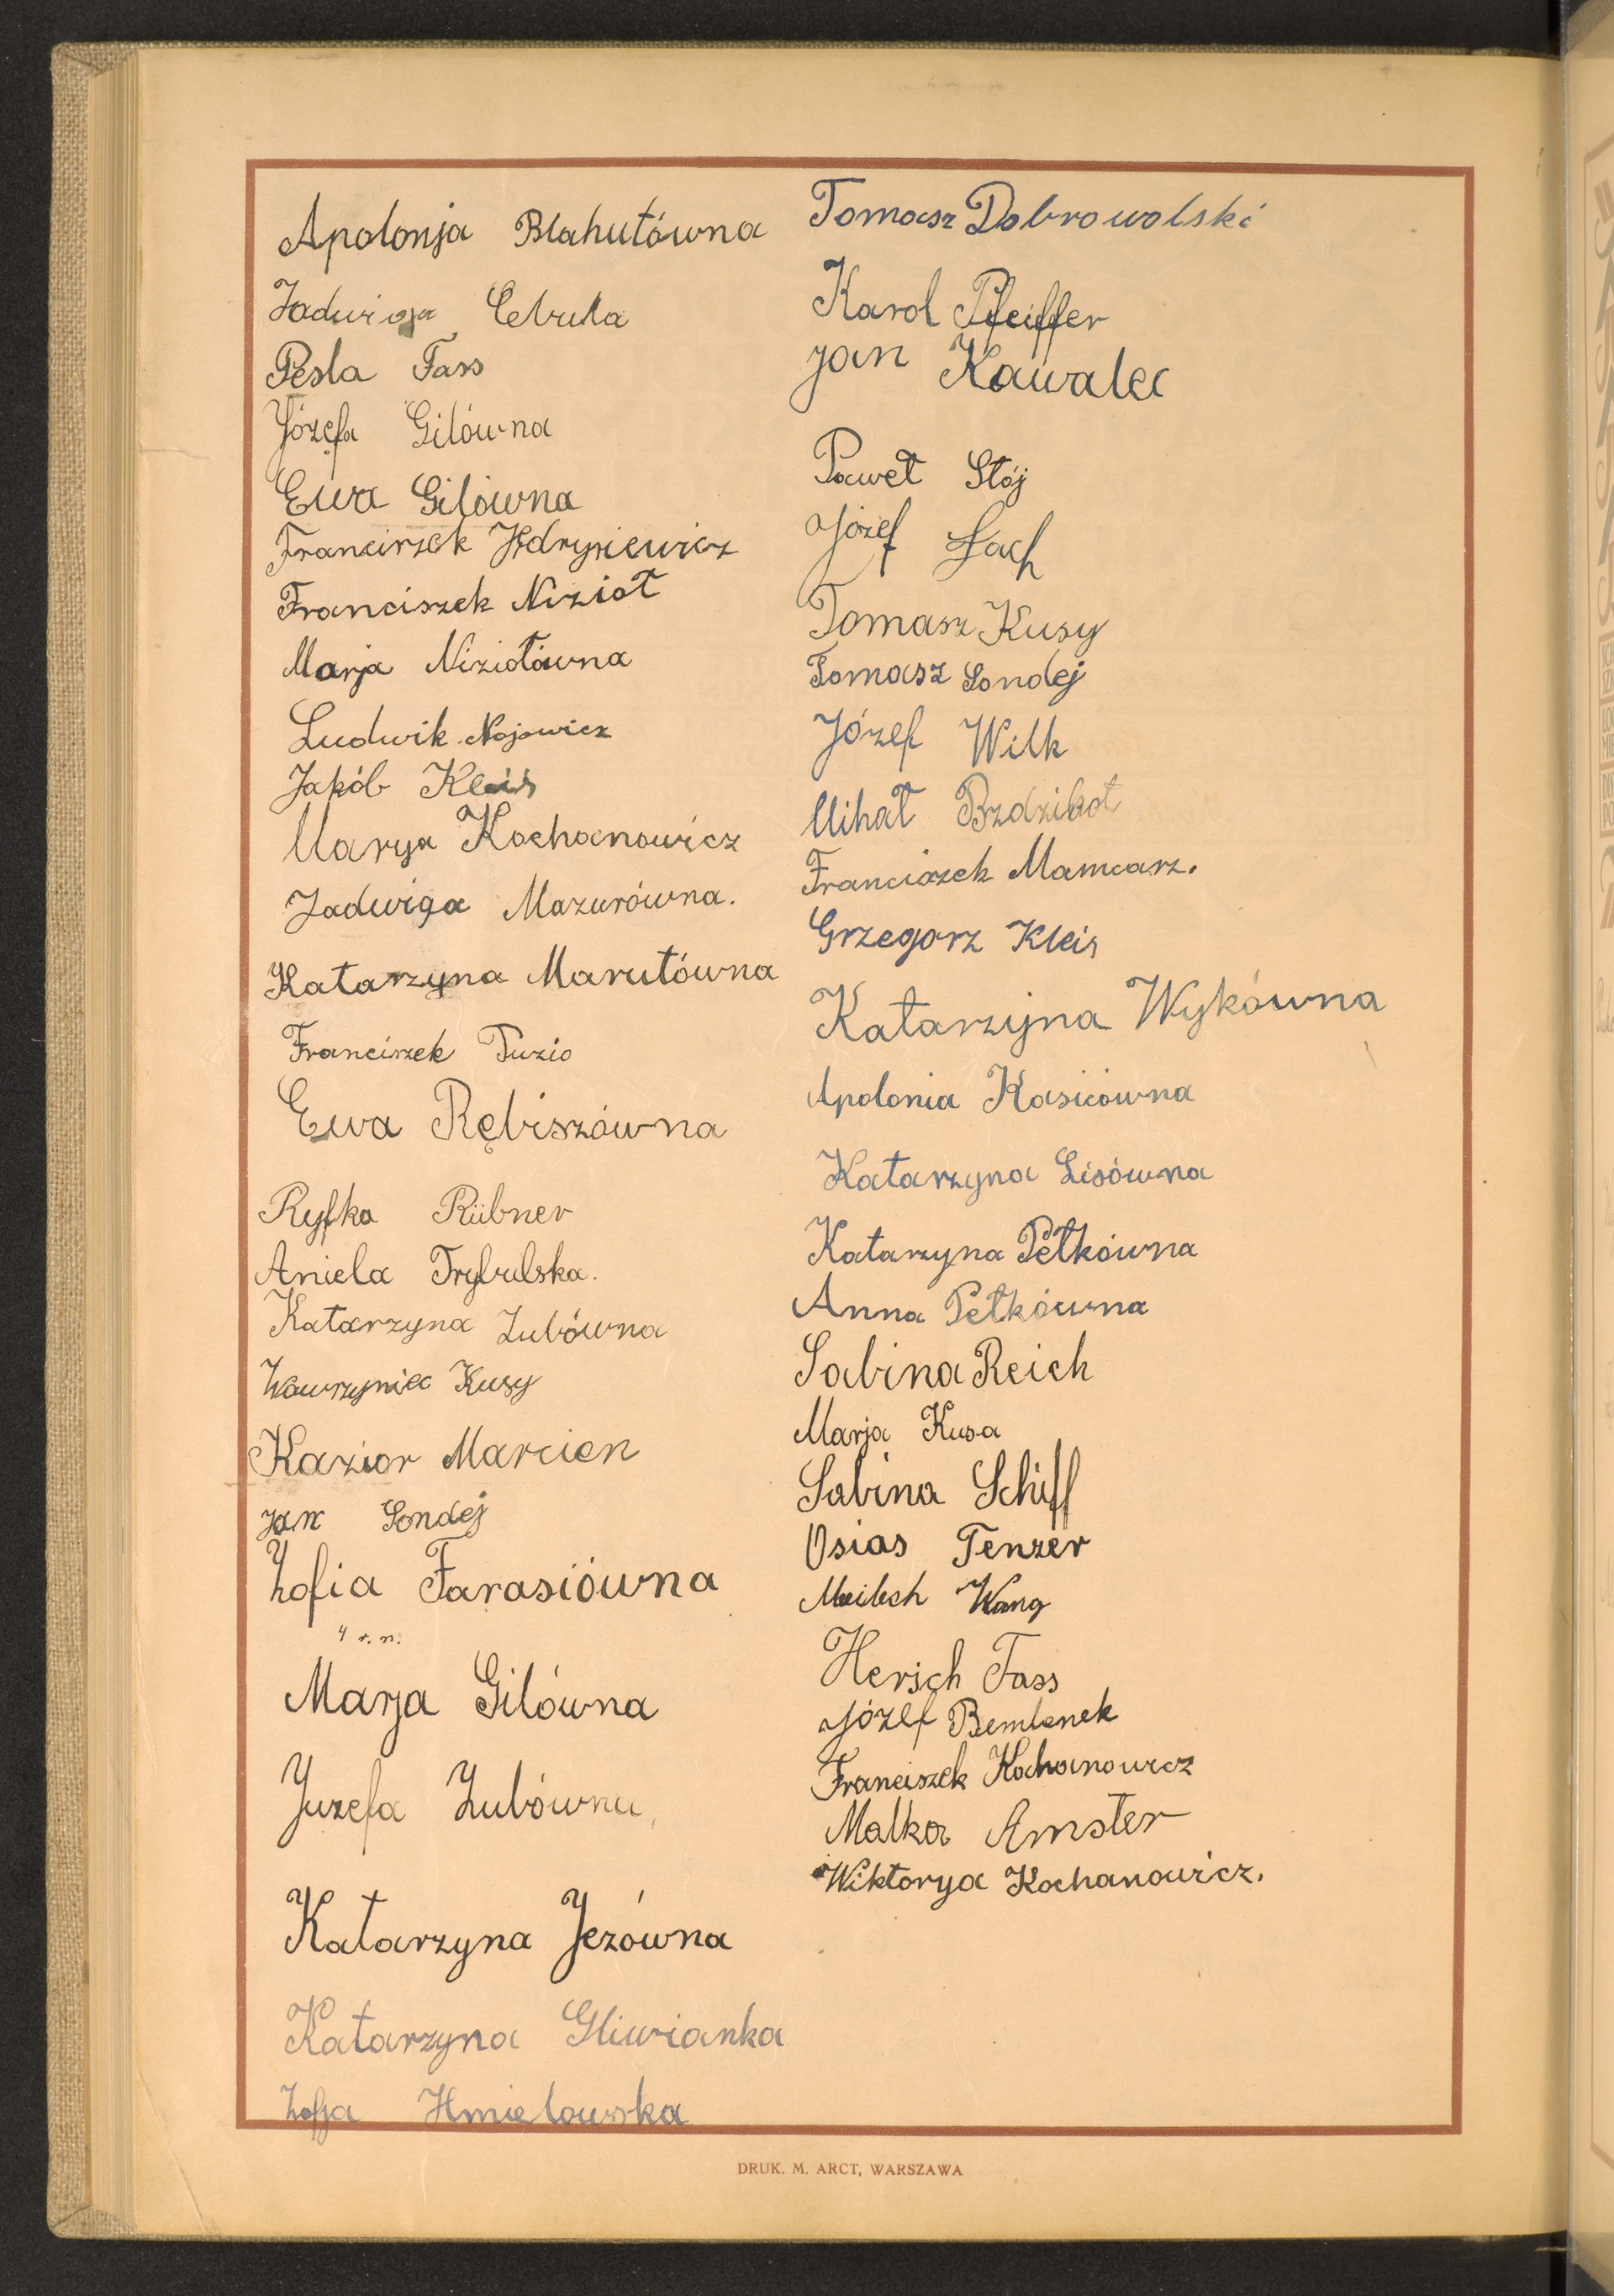 Apolonja Blahutówna
Jadwiga Cebula
Pesla Fass
Józefa Gilówna
Ewa Gilówna
Franciszek Jędrysiewicz
Franciszek Nizioł
Marja Niziołówna
Ludwik Najowicz
Jakób Kleis
Marya Kochanowicz
Jadwiga Mazurówna.
Katarzyna Marutówna
Franciszek Puzio
Ewa Rębiszówna
Ryfka Rübner
Aniela Trybulska.
Katarzyna Zubówna
Wawrzyniec Kusy
Kazior Marcien
Jan Sondej
Zofia Farasiówna
4 r. n.
Marja Gilówna
Juzefa Zubówna
Katarzyna Jezówna
Katarzyna Gliwianka
Zofja Hmielowska
Tomasz Dobrowolski
Karol Pfeiffer
Jan Kawalec
Paweł Stój
Józef Łach
Tomasz Kusy
Tomasz Sondej
Józef Wilk
Mihał Bzdzikot
Franciszek Mamcarz.
Grzegorz Kleis
Katarzyna Wykówna
Apolonia Kasicówna
Katarzyna Lisówna
Katarzyna Pełkówna
Anna Pełkówna
Sabina Reich
Marja Kusa
Sabina Schiff
Osias Tenzer
Meilech Wang
Hersch Fass
Józef Bemlenek
Franciszek Kochanowicz
Malka Amster
Wiktorya Kochanowicz.
DRUK. M. ARCT, WARSZAWA